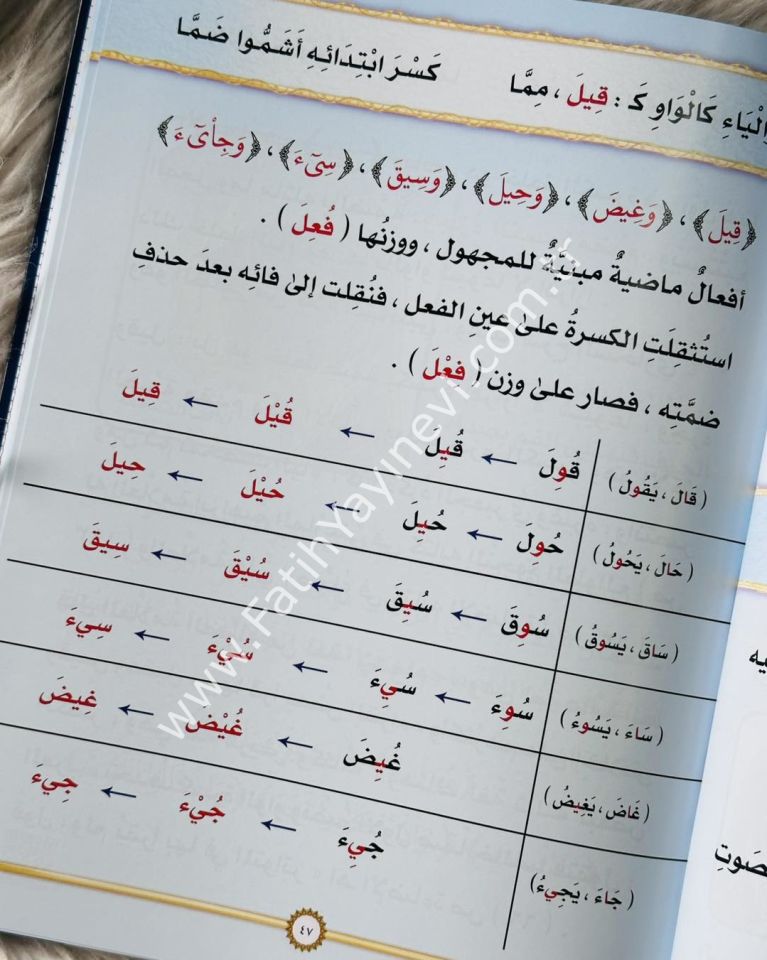 الْيَاءِ كَالْوَاوِ كَـ : قِيلَ ، مِمَّا كَسْرَ ابْتِدَائِهِ أَشَمُّوا ضَمَّا
﴿قِيلَ﴾ ، ﴿وَغِيضَ﴾ ، ﴿وَحِيلَ﴾ ، ﴿وَسِيقَ﴾ ، ﴿سِىٓءَ﴾ ، ﴿وَجِا۟ىٓءَ﴾
أفعالٌ ماضيةٌ مبنيَّةٌ للمجهول ، ووزنُها ( فُعِلَ ) .
استُثقِلَتِ الكسرةُ علىٰ عينِ الفعل ، فنُقِلت إلىٰ فائِه بعدَ حذفِ
ضمَّتِه ، فصار علىٰ وزن ( فِعْلَ ) .
( قَالَ ، يَقُولُ ) قُوِلَ ← قُيِلَ ← قُيْلَ ← قِيلَ
( حَالَ ، يَحُولُ ) حُوِلَ ← حُيِلَ ← حُيْلَ ← حِيلَ
( سَاقَ ، يَسُوقُ ) سُوِقَ ← سُيِقَ ← سُيْقَ ← سِيقَ
( سَاءَ ، يَسُوءُ ) سُوِءَ ← سُيِءَ ← سُيْءَ ← سِيءَ
( غَاضَ ، يَغِيضُ ) غُيِضَ ← غُيْضَ ← غِيضَ
( جَاءَ ، يَجِيءُ ) جُيِءَ ← جُيْءَ ← جِيءَ
٤٧
يه
صَوتِ
www.FatihYayinevi.com.tr